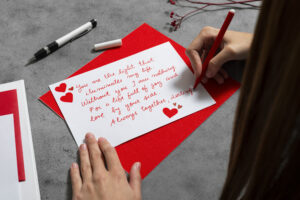 You are the light that
illuminates my life
Without you I am nothing
For a life full of joy and
love by your side
Always together, darling!